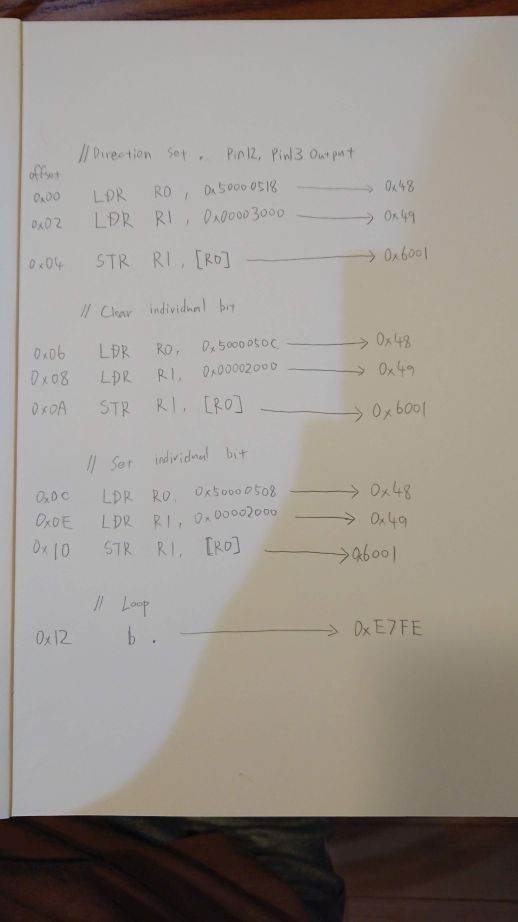 // Direction Set. Pin12, Pin13 Output
offset
0x00 LDR R0, 0x50000518 → 0x48
0x02 LDR R1, 0x00003000 → 0x49
0x04 STR R1, [R0] → 0x6001
// Clear individual bit
0x06 LDR R0, 0x5000050C → 0x48
0x08 LDR R1, 0x00002000 → 0x49
0x0A STR R1, [R0] → 0x6001
// Set individual bit
0x0C LDR R0, 0x50000508 → 0x48
0x0E LDR R1, 0x00002000 → 0x49
0x10 STR R1, [R0] → 0x6001
// Loop
0x12 b . → 0xE7FE